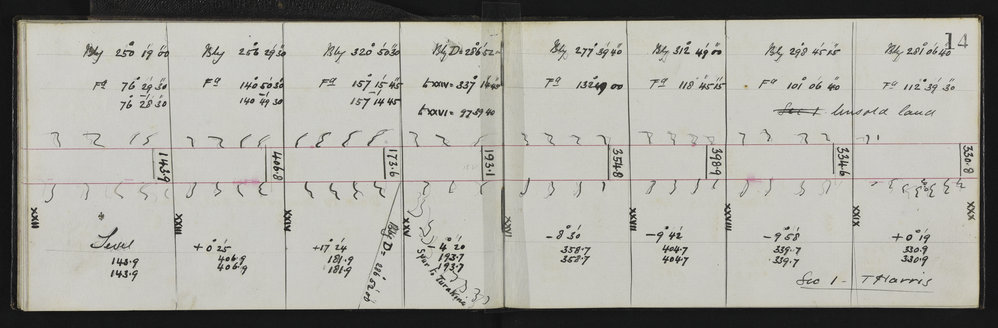 14
Blg 250° 19' 00"
Blg 256 29 30
Blg 320° 50 30
Blg D = 286 52
Blg 277° 39' 40
Blg 312 49 00
Blg 298 45 15
Blg 281 06 40
Fa 76° 29' 30
Fa 140 50 30
Fa 157° 15' 45
XXIV = 337
Fa 118 45 15
Fa 101° 06' 40
Fa 112° 39' 30
76 28 30
140 49 30
157 14 45
XXVI = 97 39 40
Sec 1 Unsold land
143.9
406.8
173.6
193.1
354.8
398.9
334.6
330.8
XXII
XXIII
XXIV
XXV
XXVI
XXVIII
XXIX
XXX
Level
+ 0° 25'
+ 17° 24
- 4° 20
- 8° 30
- 9° 42
- 9° 58
+ 0° 19
143.9
406.9
181.9
193.7
358.7
404.7
339.7
330.9
143.9
406.9
181.9
193.7
358.7
404.7
339.7
330.9
Blg D =
Spur to Turakina
Sec 1 - T Harris